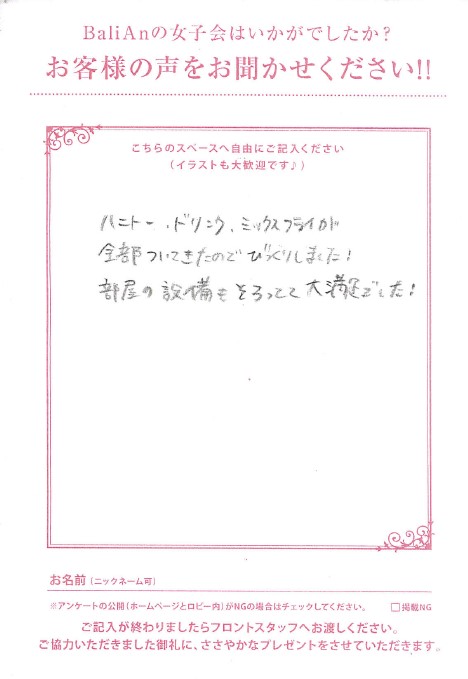 BaliAnの女子会はいかがでしたか?
お客様の声をお聞かせください!!
こちらのスペースへ自由にご記入ください
(イラストも大歓迎です♪)
ハニトー、ドリンク、ミックスフライが
全部ついてきたのでびっくりしました!
部屋の設備もそろってて大満足でした!
お名前(ニックネーム可)
※アンケートの公開(ホームページとロビー内)がNGの場合はチェックしてください。 □掲載NG
ご記入が終わりましたらフロントスタッフへお渡しください。
ご協力いただきました御礼に、ささやかなプレゼントをさせていただきます。